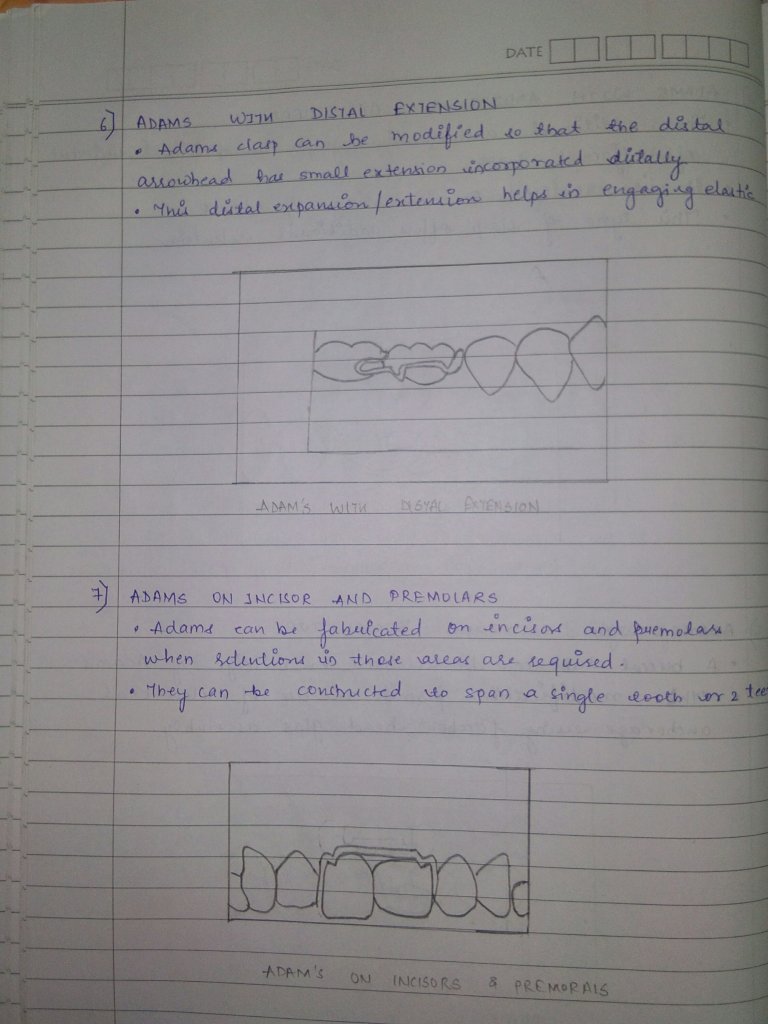 DATE
6] ADAMS WITH DISTAL EXTENSION
• Adams clasp can be modified so that the distal
arrowhead has small extension incorporated distally
• This distal expansion/extension helps in engaging elastic
ADAM'S WITH DISTAL EXTENSION
7] ADAMS ON INCISOR AND PREMOLARS
• Adams can be fabricated on incisors and premolars
when retentions in those areas are required.
• They can be constructed to span a single tooth or 2 tee
ADAM'S ON INCISORS & PREMORALS